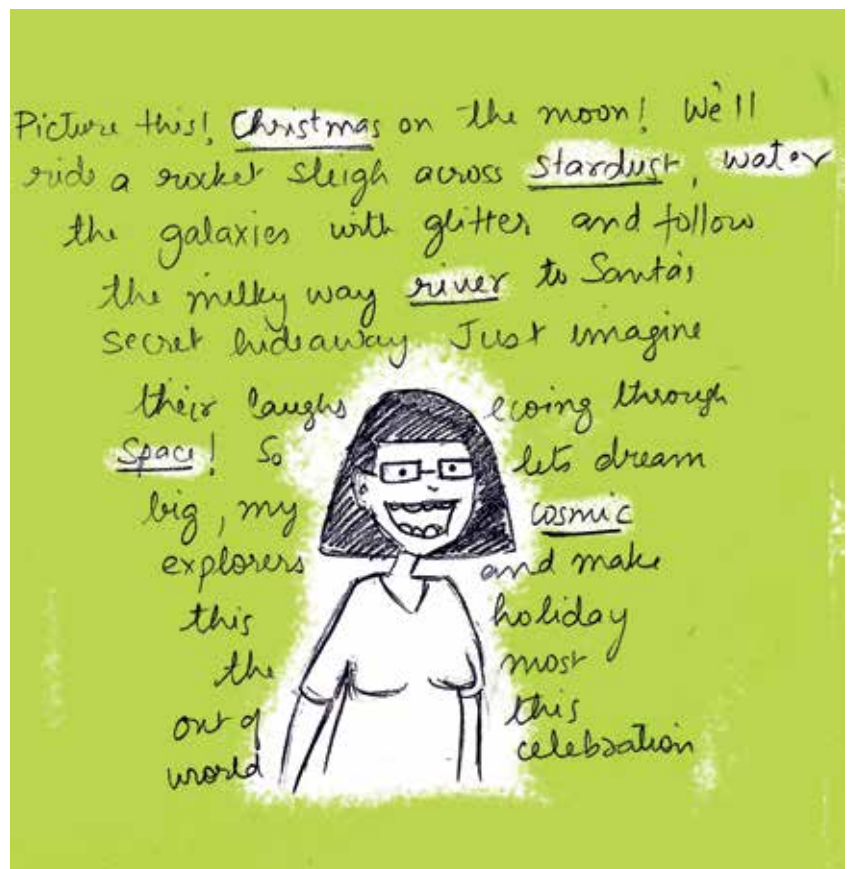 Picture this! Christmas on the moon! We'll
ride a rocket sleigh across stardust, water
the galaxies with glitter and follow
the milky way river to Santa's
secret hideaway Just imagine
their laughs ecoing through
space! So lets dream
big, my cosmic
explorers and make
this holiday
the most
out of this
world celebration